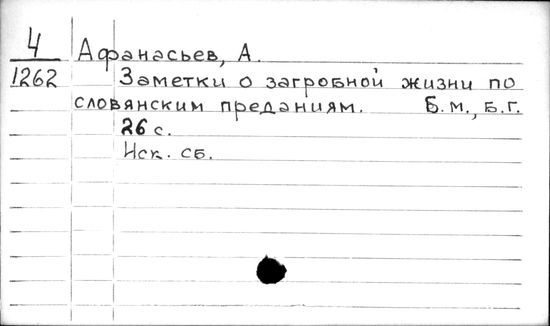 4 Афанасьев, А.
1262 Заметки о загробной жизни по
словянским преданиям. Б.м., Б.г.
26 с.
Иск. сб.